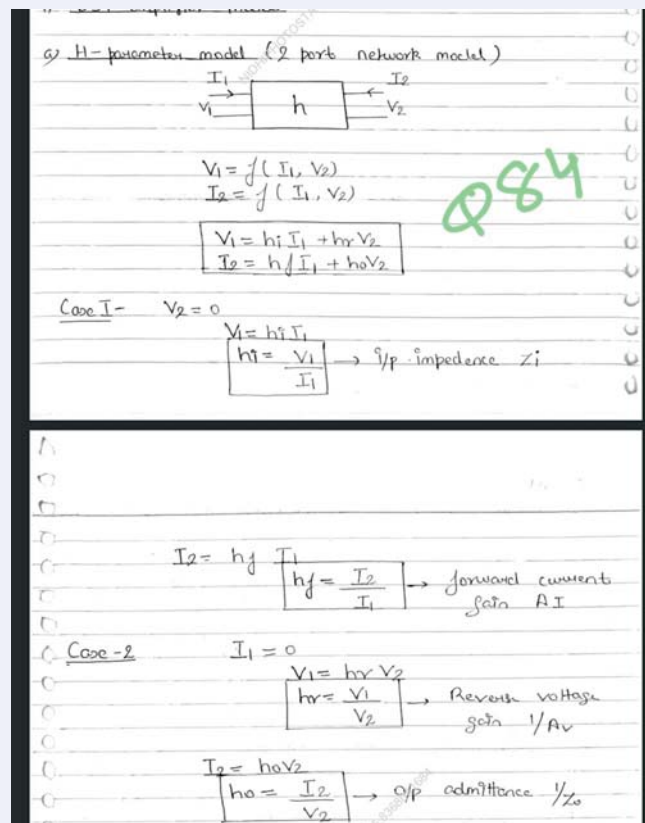 a) H-parameter model (2 port network model)
I1 I2
V1 h V2
V1 = f( I1, V2)
I2 = f ( I1, V2)
Q84
V1 = hi I1 + hr V2
I2 = hf I1 + hoV2
Case I- V2 = 0
V1 = hi I1
hi = V1/I1 → i/p impedence Zi
I2 = hf I1
hf = I2/I1 → forward current
gain AI
Case -2 I1 = 0
V1 = hr V2
hr = V1/V2 → Reverse voltage
gain 1/Av
I2 = hoV2
ho = I2/V2 → o/p admittance 1/Zo